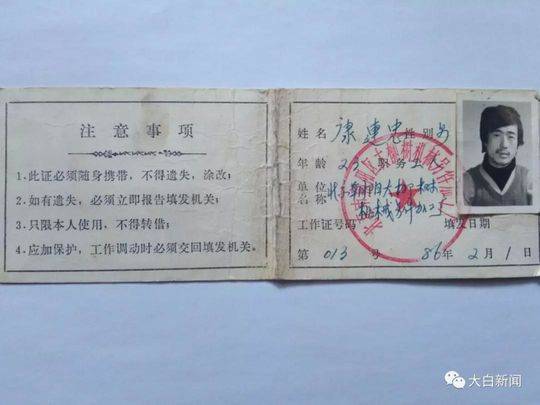 注意事项
1.此证必须随身携带，不得遗失，涂改；
2.如有遗失，必须立即报告填发机关；
3.只限本人使用，不得转借；
4.应加保护，工作调动时必须交回填发机关。
姓名 康连忠 性别 男
年龄 23 职务 工人
单位名称
工作证号码 填发日期
第 013 号 86年 2月 1日
大白新闻